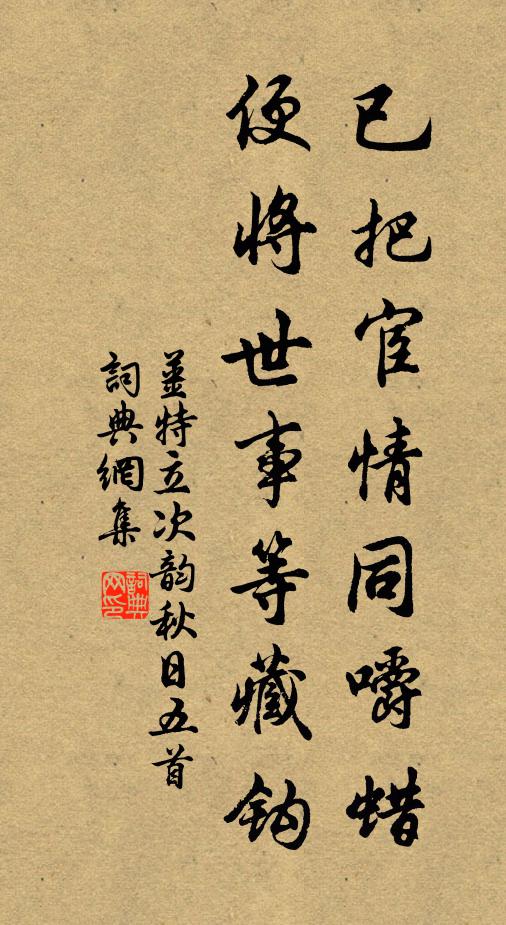 已把宦情同嚼蜡
便将世事等藏钩
姜特立次韵秋日五首
詞典網集
詞典网印